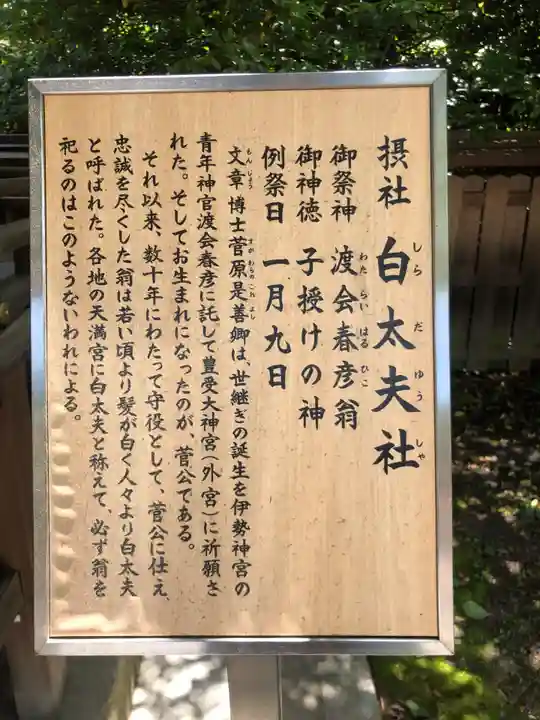 摂社 白太夫社
しらだゆうしゃ
御祭神 渡会春彦翁
わたらいはるひこ
御神徳 子授けの神
例祭日 一月九日
文章博士菅原是善卿は、世継ぎの誕生を伊勢神宮の
もんじょう すがわらのこれよし
青年神官渡会春彦に託して豊受大神宮(外宮)に祈願さ
れた。そしてお生まれになったのが、菅公である。
それ以来、数十年にわたって守役として、菅公に仕え
忠誠を尽くした翁は若い頃より髪が白く人々より白太夫
と呼ばれた。各地の天満宮に白太夫と称えて、必ず翁を
祀るのはこのようないわれによる。